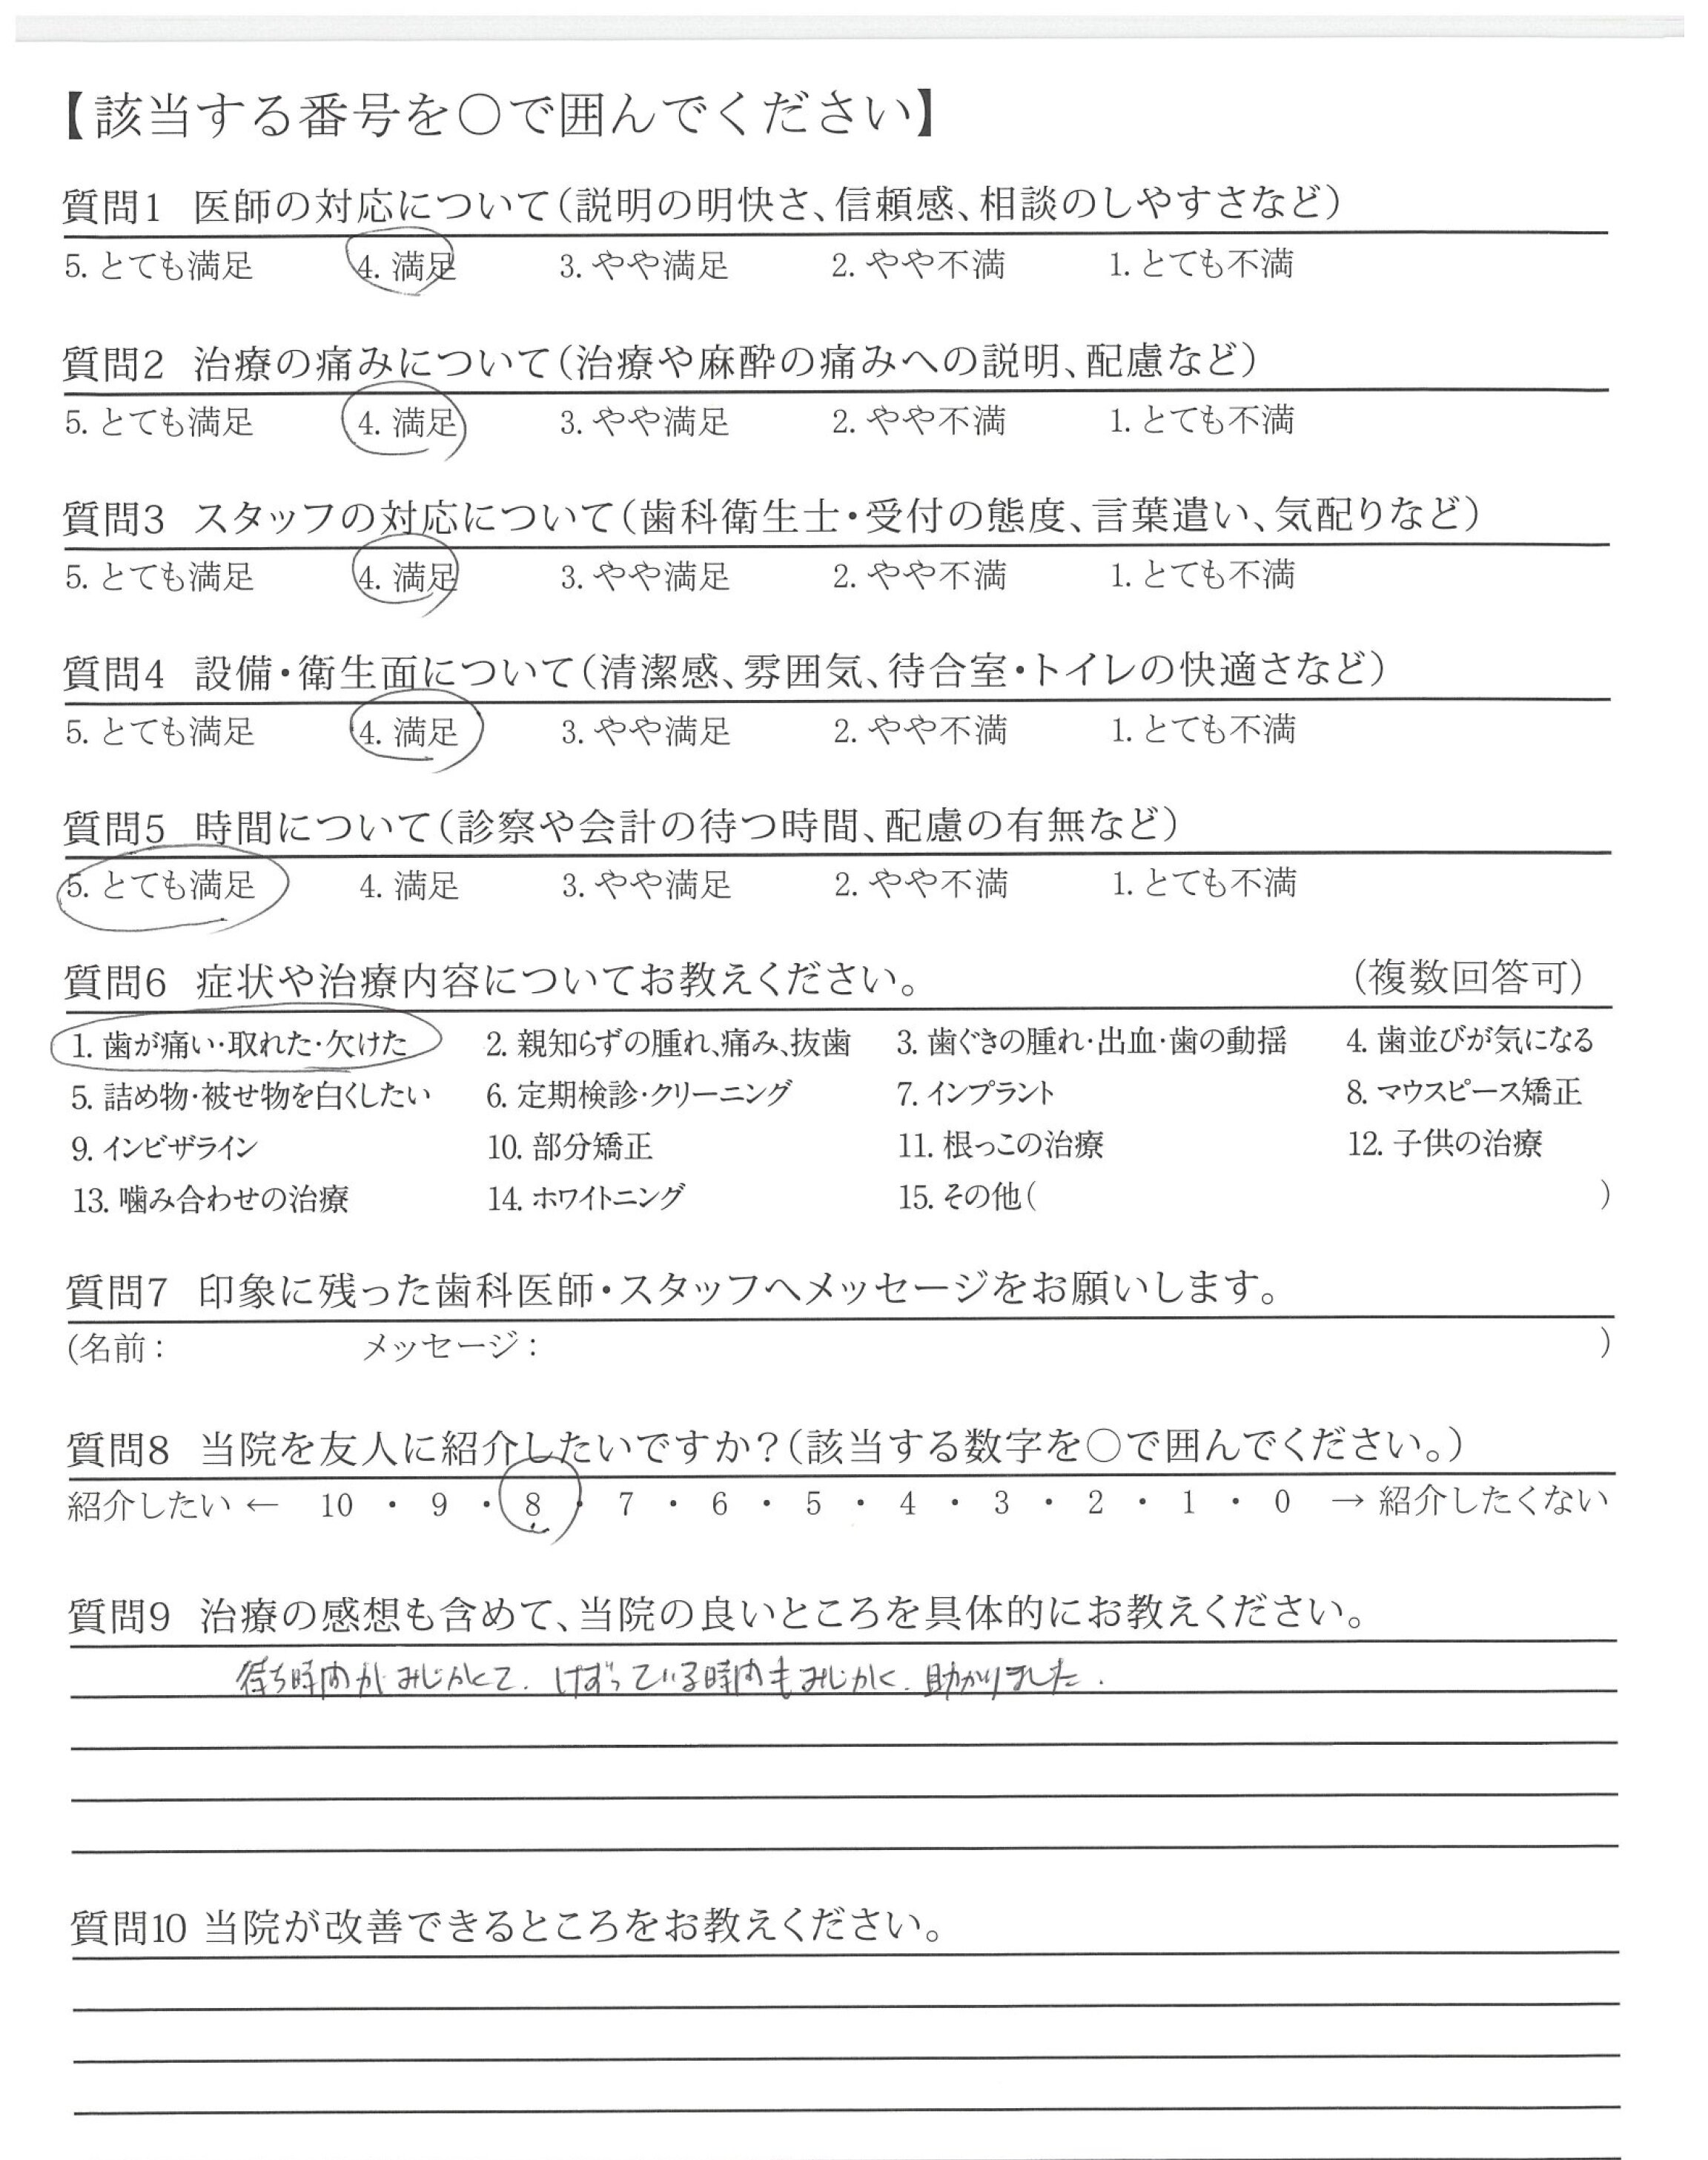 【該当する番号を○で囲んでください】
質問1 医師の対応について(説明の明快さ、信頼感、相談のしやすさなど)
5. とても満足 4. 満足 3. やや満足 2. やや不満 1. とても不満
質問2 治療の痛みについて(治療や麻酔の痛みへの説明、配慮など)
5. とても満足 4. 満足 3. やや満足 2. やや不満 1. とても不満
質問3 スタッフの対応について(歯科衛生士・受付の態度、言葉遣い、気配りなど)
5. とても満足 4. 満足 3. やや満足 2. やや不満 1. とても不満
質問4 設備・衛生面について(清潔感、雰囲気、待合室・トイレの快適さなど)
5. とても満足 4. 満足 3. やや満足 2. やや不満 1. とても不満
質問5 時間について(診察や会計の待つ時間、配慮の有無など)
5. とても満足 4. 満足 3. やや満足 2. やや不満 1. とても不満
質問6 症状や治療内容についてお教えください。 (複数回答可)
1. 歯が痛い・取れた・欠けた 2. 親知らずの腫れ、痛み、抜歯 3. 歯ぐきの腫れ・出血・歯の動揺 4. 歯並びが気になる
5. 詰め物・被せ物を白くしたい 6. 定期検診・クリーニング 7. インプラント 8. マウスピース矯正
9. インビザライン 10. 部分矯正 11. 根っこの治療 12. 子供の治療
13. 噛み合わせの治療 14. ホワイトニング 15. その他( )
質問7 印象に残った歯科医師・スタッフへメッセージをお願いします。
(名前: メッセージ: )
質問8 当院を友人に紹介したいですか?(該当する数字を○で囲んでください。)
紹介したい ← 10 ・ 9 ・ 8 ・ 7 ・ 6 ・ 5 ・ 4 ・ 3 ・ 2 ・ 1 ・ 0 → 紹介したくない
質問9 治療の感想も含めて、当院の良いところを具体的にお教えください。
待ち時間がみじかくて、けずっている時間もみじかく、助かりました.
質問10 当院が改善できるところをお教えください。